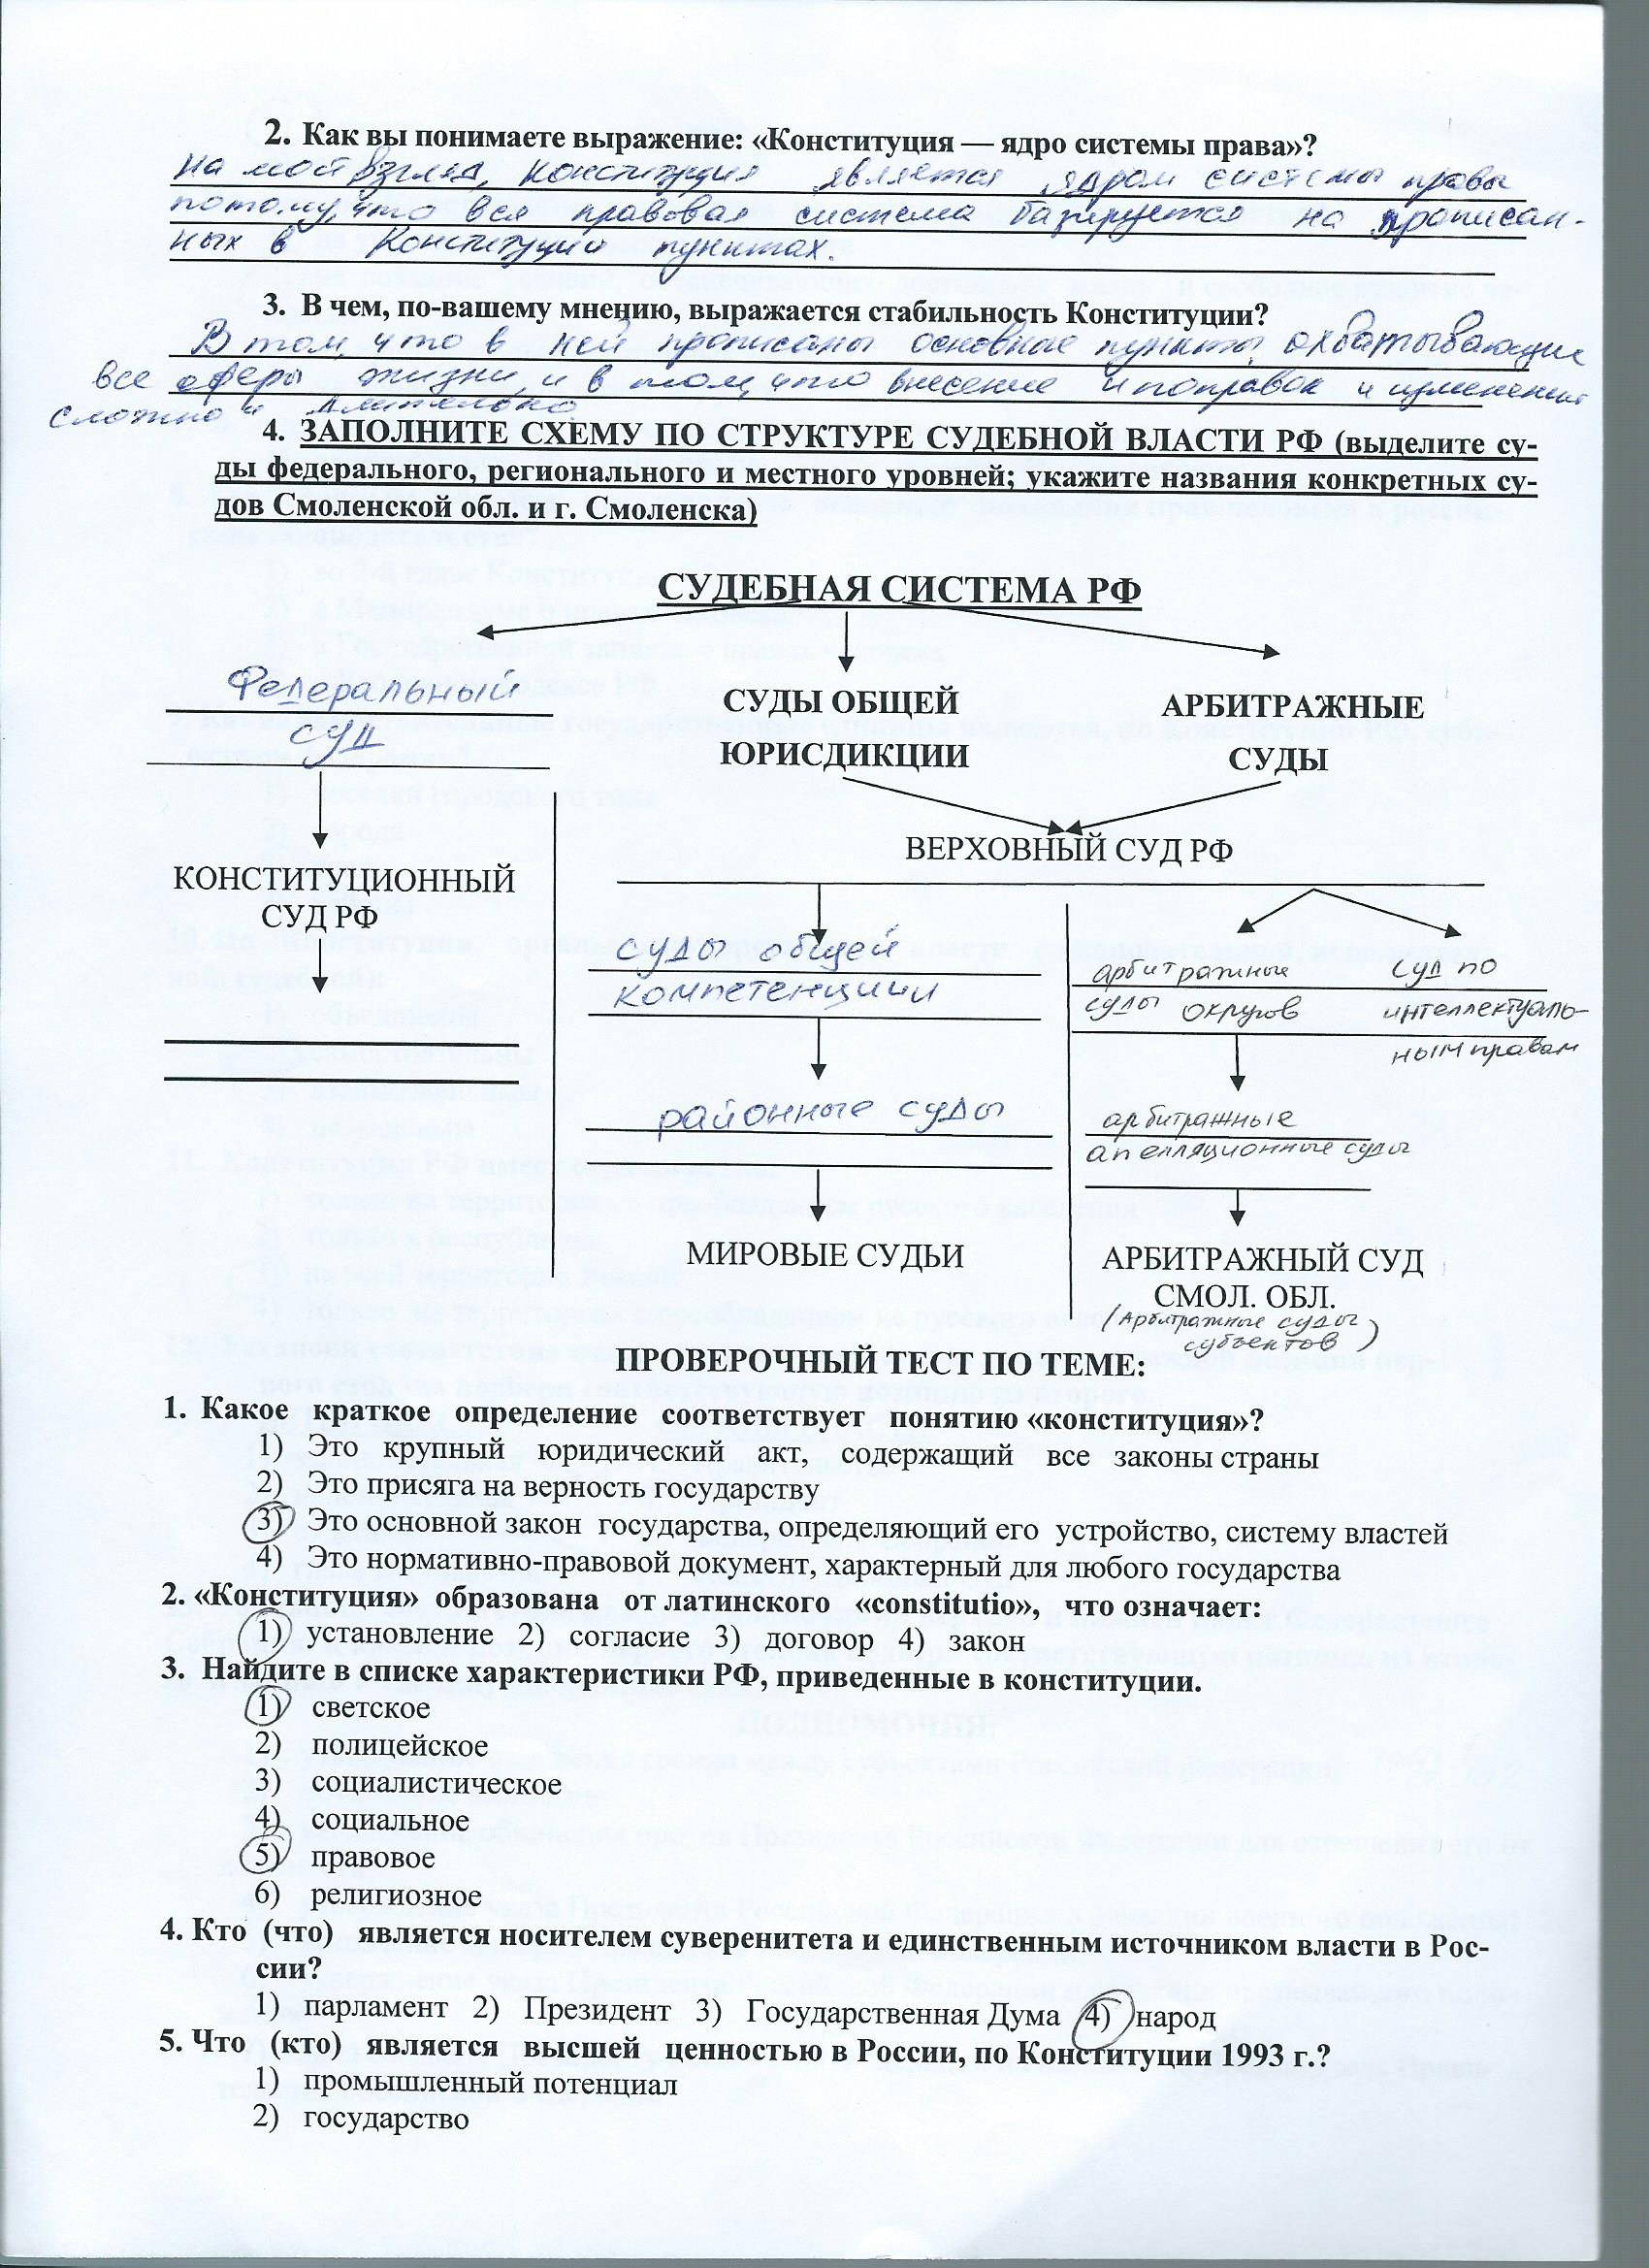 2. Как вы понимаете выражение: «Конституция — ядро системы права»?
На мой взгляд, Конституция является ядром системы права
потому, что вся правовая система базируется на прописан-
ных в Конституции пунктах.
3. В чем, по-вашему мнению, выражается стабильность Конституции?
В том, что в ней прописаны основные пункты, охватывающие
все сферы жизни, и в том, что внесение и поправок и изменений
сложно и длительно
4. ЗАПОЛНИТЕ СХЕМУ ПО СТРУКТУРЕ СУДЕБНОЙ ВЛАСТИ РФ (выделите су-
ды федерального, регионального и местного уровней; укажите названия конкретных су-
дов Смоленской обл. и г. Смоленска)
СУДЕБНАЯ СИСТЕМА РФ
Федеральный
суд
СУДЫ ОБЩЕЙ
ЮРИСДИКЦИИ
АРБИТРАЖНЫЕ
СУДЫ
КОНСТИТУЦИОННЫЙ
СУД РФ
ВЕРХОВНЫЙ СУД РФ
суды общей
компетенциии
районные суды
МИРОВЫЕ СУДЬИ
арбитражные
суды округов
суд по
интеллектуаль-
ным правам
арбитражные
апелляционные суды
АРБИТРАЖНЫЙ СУД
СМОЛ. ОБЛ.
(Арбитражные суды
субъектов)
ПРОВЕРОЧНЫЙ ТЕСТ ПО ТЕМЕ:
1. Какое краткое определение соответствует понятию «конституция»?
1) Это крупный юридический акт, содержащий все законы страны
2) Это присяга на верность государству
3) Это основной закон государства, определяющий его устройство, систему властей
4) Это нормативно-правовой документ, характерный для любого государства
2. «Конституция» образована от латинского «constitutio», что означает:
1) установление 2) согласие 3) договор 4) закон
3. Найдите в списке характеристики РФ, приведенные в конституции.
1) светское
2) полицейское
3) социалистическое
4) социальное
5) правовое
6) религиозное
4. Кто (что) является носителем суверенитета и единственным источником власти в Рос-
сии?
1) парламент 2) Президент 3) Государственная Дума 4) народ
5. Что (кто) является высшей ценностью в России, по Конституции 1993 г.?
1) промышленный потенциал
2) государство